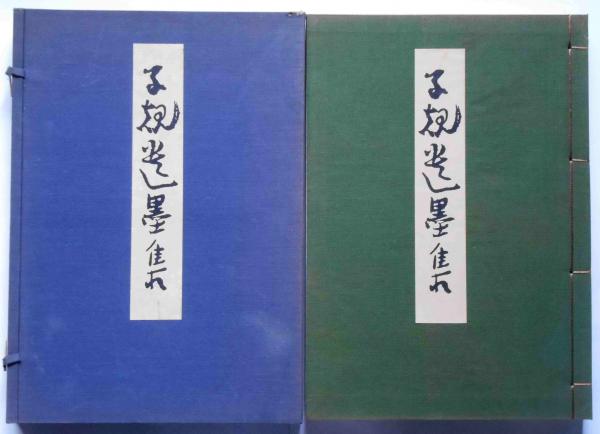 子規遺墨集
子規遺墨集